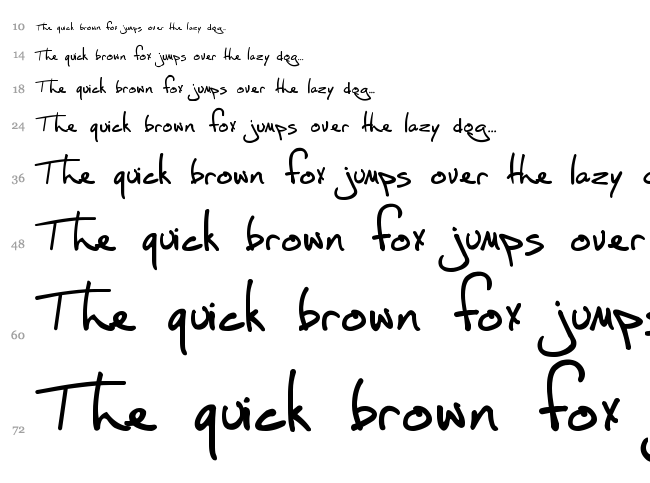 10 The quick brown fox jumps over the lazy dog...
14 The quick brown fox jumps over the lazy dog...
18 The quick brown fox jumps over the lazy dog...
24 The quick brown fox jumps over the lazy dog...
36 The quick brown fox jumps over the lazy
48 The quick brown fox jumps over
60 The quick brown fox jumps
72 The quick brown fox